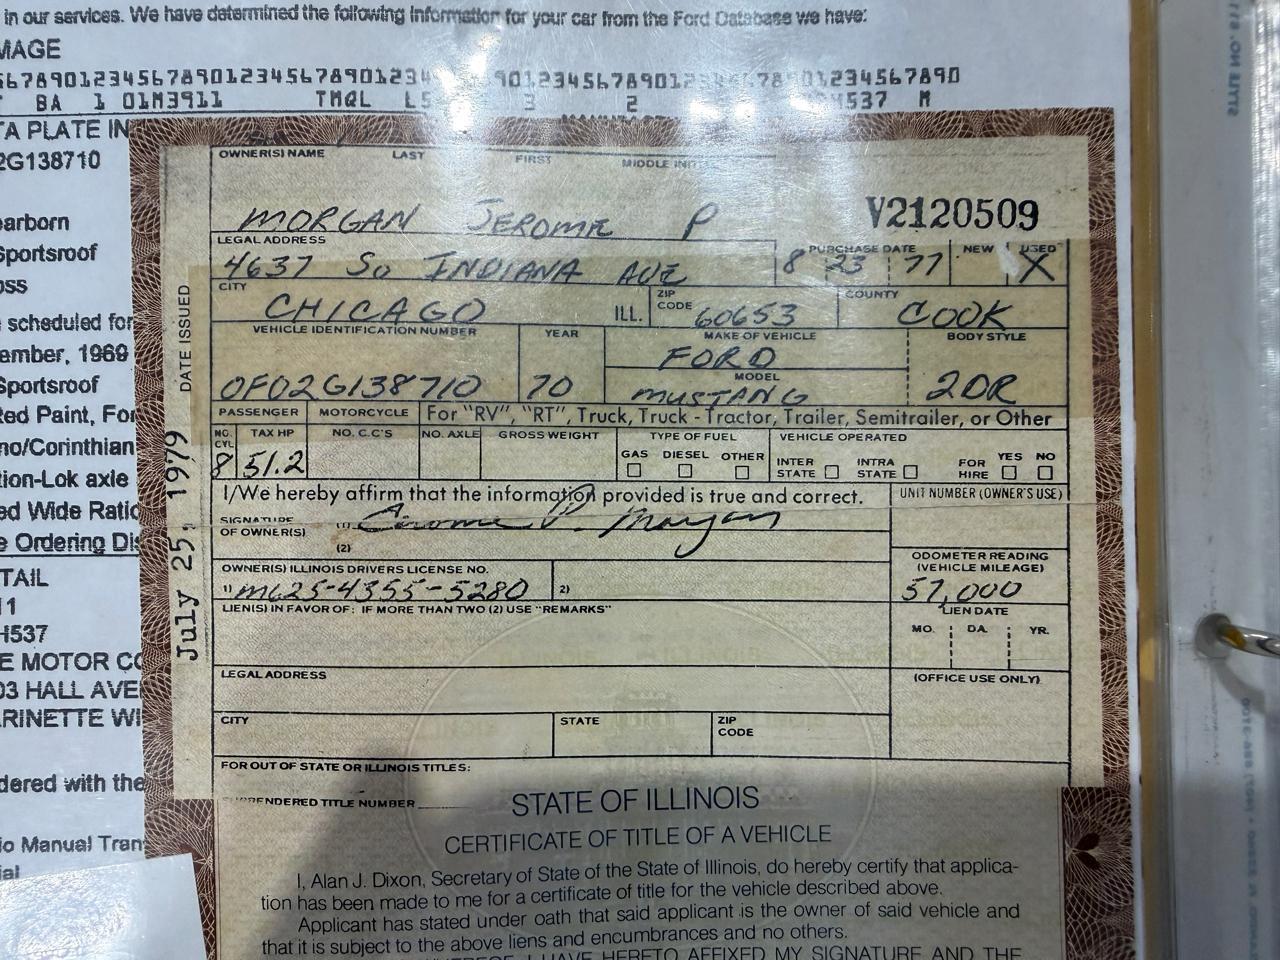 in our services. We have determined the following information for your car from the Ford Database we have:
MAGE
BA 1 01M3911 TMQL 3 2 H537 M
TA PLATE IN
2G138710
earborn
Sportsroof
oss
scheduled for
ember, 1969
Sportsroof
Red Paint, For
no/Corinthian
tion-Lok axle
ed Wide Ratio
e Ordering Dis
TAIL
11
H537
E MOTOR CO
03 HALL AVE
ARINETTE WI
dered with the
io Manual Tran
ial
DATE ISSUED
July 25, 1979
OWNER(S) NAME LAST FIRST MIDDLE
MORGAN JEROME P V2120509
LEGAL ADDRESS PURCHASE DATE NEW USED
4637 So INDIANA AVE 8 23 77 X
CITY ZIP CODE COUNTY
CHICAGO ILL. 60653 COOK
VEHICLE IDENTIFICATION NUMBER YEAR MAKE OF VEHICLE BODY STYLE
FORD
MODEL
0F02G138710 70 MUSTANG 2DR
PASSENGER MOTORCYCLE For "RV", "RT", Truck, Truck - Tractor, Trailer, Semitrailer, or Other
NO. CYL TAX HP NO. C.C'S NO. AXLE GROSS WEIGHT TYPE OF FUEL VEHICLE OPERATED
GAS DIESEL OTHER INTER STATE INTRA STATE FOR HIRE YES NO
8 51.2
I/We hereby affirm that the information provided is true and correct. UNIT NUMBER (OWNER'S USE)
SIGNATURE OF OWNER(S) (1) Jerome P. Morgan
(2)
ODOMETER READING (VEHICLE MILEAGE)
OWNER(S) ILLINOIS DRIVERS LICENSE NO.
M625-4355-5280 2) 57,000
LIEN(S) IN FAVOR OF: IF MORE THAN TWO (2) USE "REMARKS" LIEN DATE
MO. DA. YR.
LEGAL ADDRESS (OFFICE USE ONLY)
CITY STATE ZIP CODE
FOR OUT OF STATE OR ILLINOIS TITLES:
SURRENDERED TITLE NUMBER
STATE OF ILLINOIS
CERTIFICATE OF TITLE OF A VEHICLE
I, Alan J. Dixon, Secretary of State of the State of Illinois, do hereby certify that applica-
tion has been made to me for a certificate of title for the vehicle described above.
Applicant has stated under oath that said applicant is the owner of said vehicle and
that it is subject to the above liens and encumbrances and no others.
I HAVE HERETO AFFIXED MY SIGNATURE AND THE